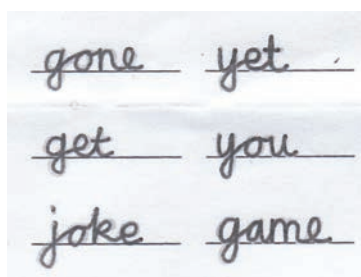 gone yet
get you
joke game